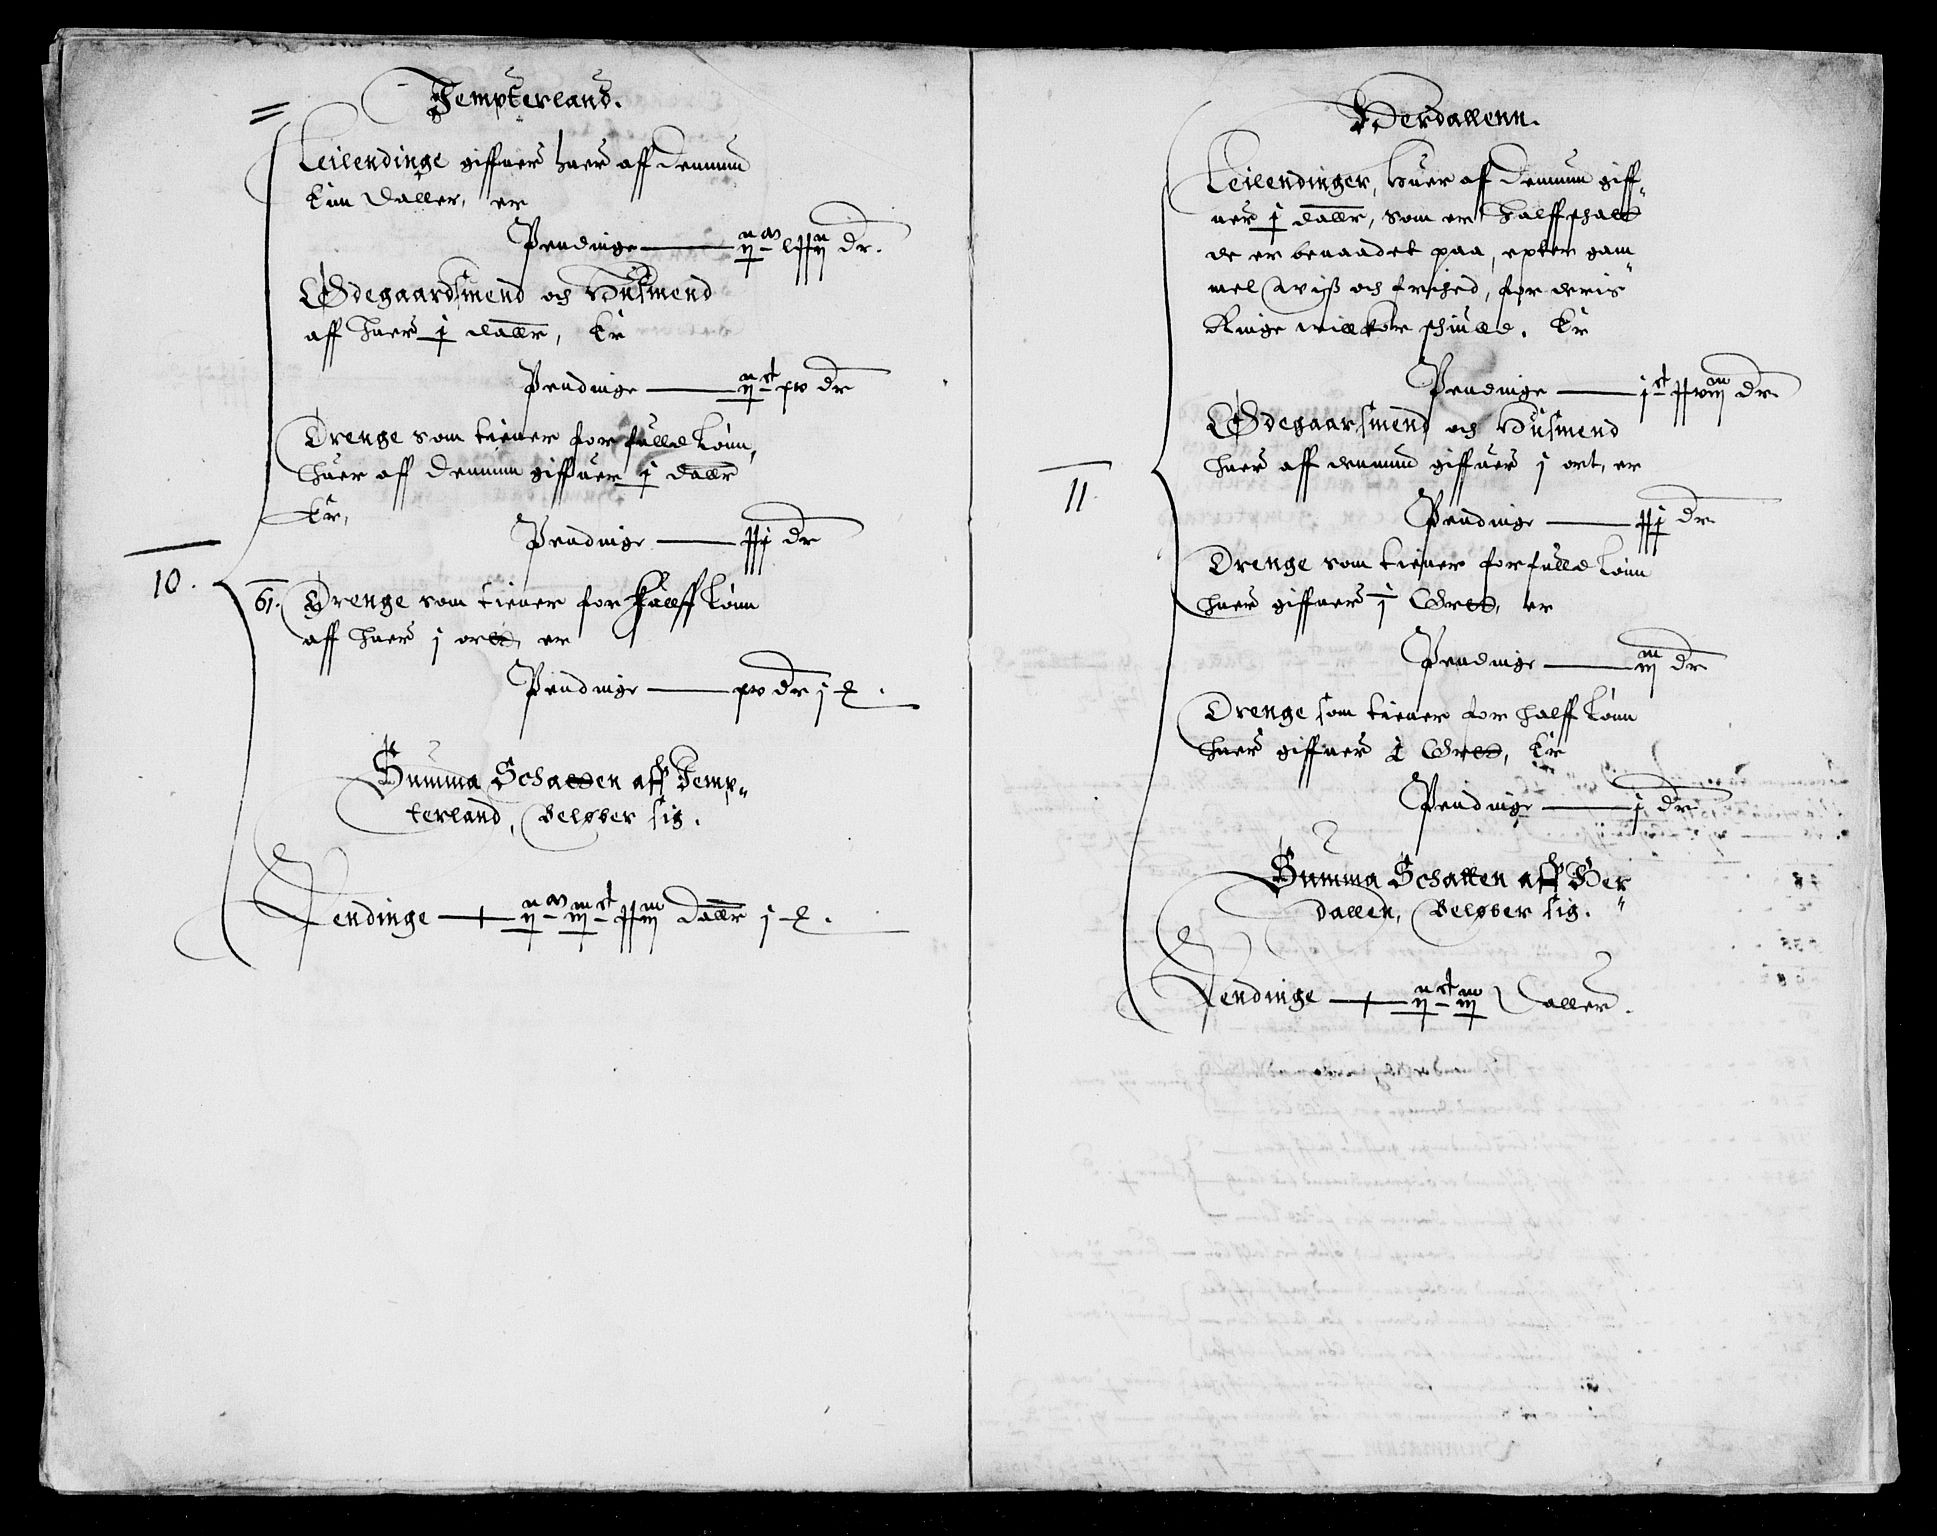 Jempterland.
Leilendinge giffuer huer aff dennum
Enn Daller, er
Pendinge — ij m lxxij dr.
Ødegaardsmend och Husmend
aff huer j dallr, Er
Pendinge — ij ct xv dr
Drenge som tiener for fulld Lønn,
huer aff dennum giffuer j dallr
Er,
Pendinge — xxj dr
10.
6.
Drenge som tiener for Hallff Lønn
aff huer j ortt, er
Pendinge — xv dr j
Summa Schatten aff Jemp„
terland, Beløber sig.
Pendinge — ij m iij ct xxiij Dallr j
Werdallenn.
Leilendinger, Huer aff dennum giff„
uer j dallr, som er halff schatt
de er benaadet paa, epter gam„
mel wiss och frihed, for deris
Ringe willkor schiuld. Er
Pendinge — j ct xxviij dr.
Ødegaarsmend och Husmend
huer aff dennum giffuer j ort, er
Pendinge — xxj dr.
11.
Drenge som tiener for fulld Lønn
huer giffuer j Ortt, er
Pendinge — iij dr
Drenge som tiener for halff Lønn
huer giffuer Ortt, Er
Pendinge — j dr
Summa Schatten aff Wer„
dallen, Beløber sig.
Pendinge — Daller.